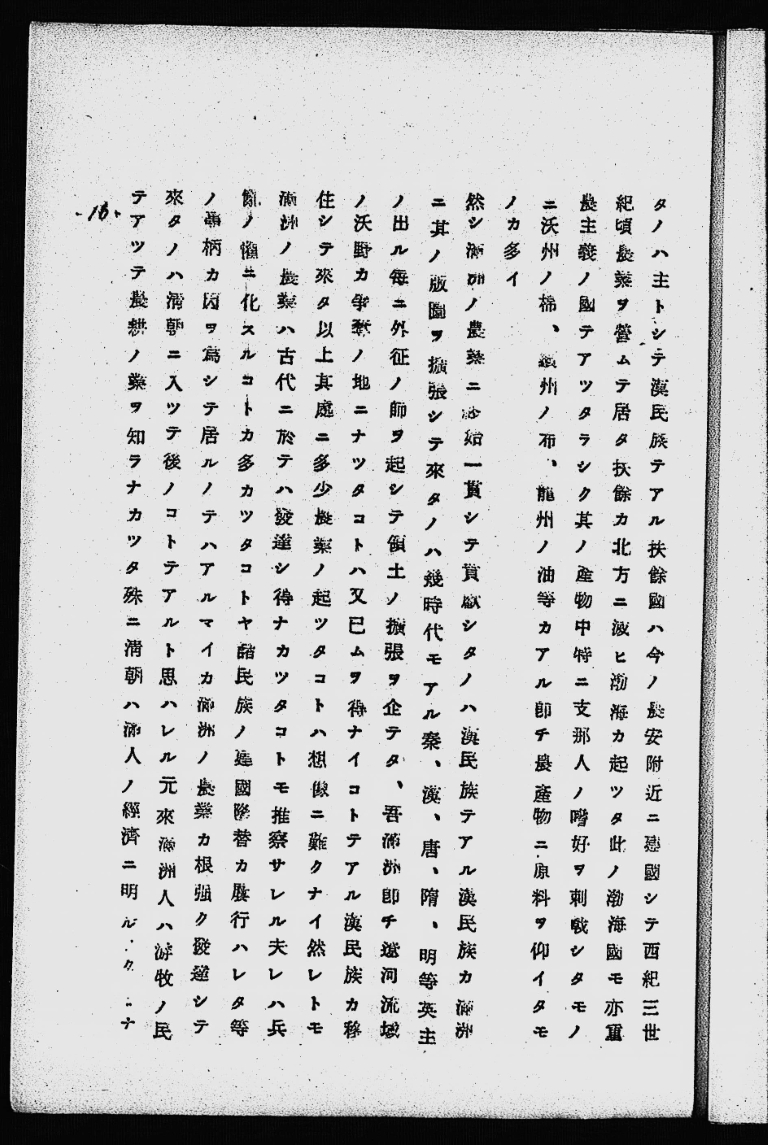 タノハ主トシテ漢民族テアル扶餘國ハ今ノ農安附近ニ建國シテ西紀三世
紀頃農業ヲ營ムテ居タ扶餘カ北方ニ滅ヒ渤海カ起ツタ此ノ渤海國モ亦重
農主義ノ國テアツタラシク其ノ產物中特ニ支那人ノ嗜好ヲ刺戟シタモノ
ニ沃州ノ棉、顯州ノ布、龍州ノ油等カアル卽チ農產物ニ原料ヲ仰イタモ
ノカ多イ
然シ滿洲ノ農業ニ終始一貫シテ貢獻シタノハ漢民族テアル漢民族カ滿洲
ニ其ノ版圖ヲ擴張シテ來タノハ幾時代モアル秦、漢、唐、隋、明等英主
ノ出ル每ニ外征ノ師ヲ起シテ領土ノ擴張ヲ企テタ、吾滿洲卽チ遼河流域
ノ沃野カ爭奪ノ地ニナツタコトハ又已ムヲ得ナイコトテアル漢民族カ移
住シテ來タ以上其處ニ多少農業ノ起ツタコトハ想像ニ難クナイ然レトモ
滿洲ノ農業ハ古代ニ於テハ發達シ得ナカツタコトモ推察サレル夫レハ兵
亂ノ衢ニ化スルコトカ多カツタコトヤ諸民族ノ建國隆替カ屢行ハレタ等
ノ事柄カ因ヲ爲シテ居ルノテハアルマイカ滿洲ノ農業カ根强ク發達シテ
來タノハ淸朝ニ入ツテ後ノコトテアルト思ハレル元來滿洲人ハ游牧ノ民
テアツテ農耕ノ業ヲ知ラナカツタ殊ニ淸朝ハ滿人ノ經濟ニ明ルクナ
-16-